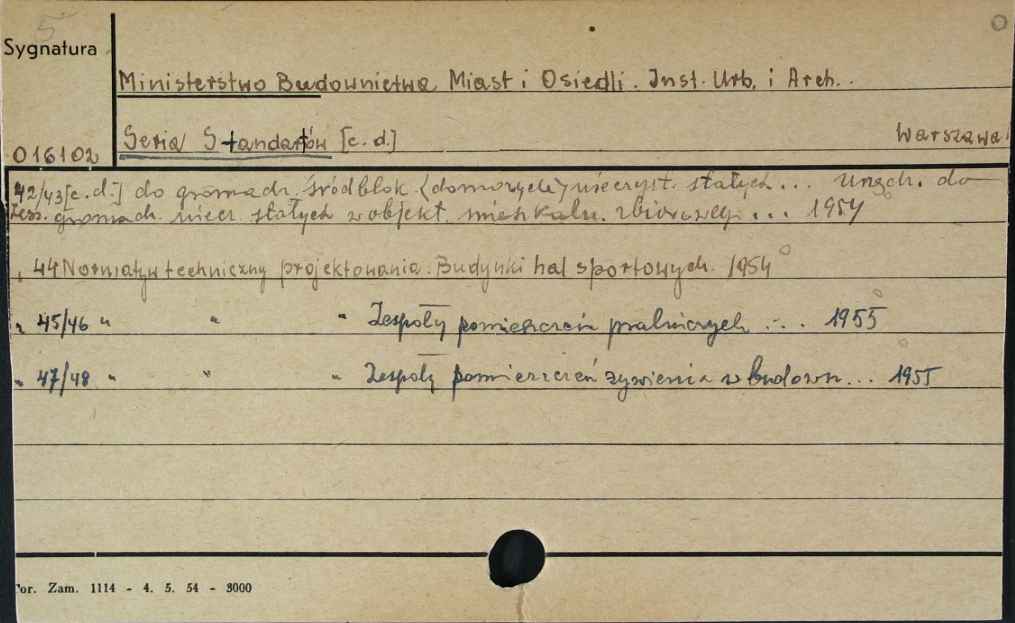 5
Sygnatura
Ministerstwo Budownictwa Miast i Osiedli. Inst. Urb. i Arch.
Seria Standartów [c. d.] Warszawa
016102
42/43 [c. d.] do gromadz. śródblok. (domowych) nieczyst. stałych ... Urządz. do
gromadz. niecz. stałych w objekt. mieszkaln. zbiorowego ... 1954
" 44 Normatyw techniczny projektowania. Budynki hal sportowych. 1954
" 45/46 " " " Zespoły pomieszczeń pralniczych ... 1955
" 47/48 " " " Zespoły pomieszczeń żywienia w budown... 1955
Tor. Zam. 1114 - 4. 5. 54 - 3000